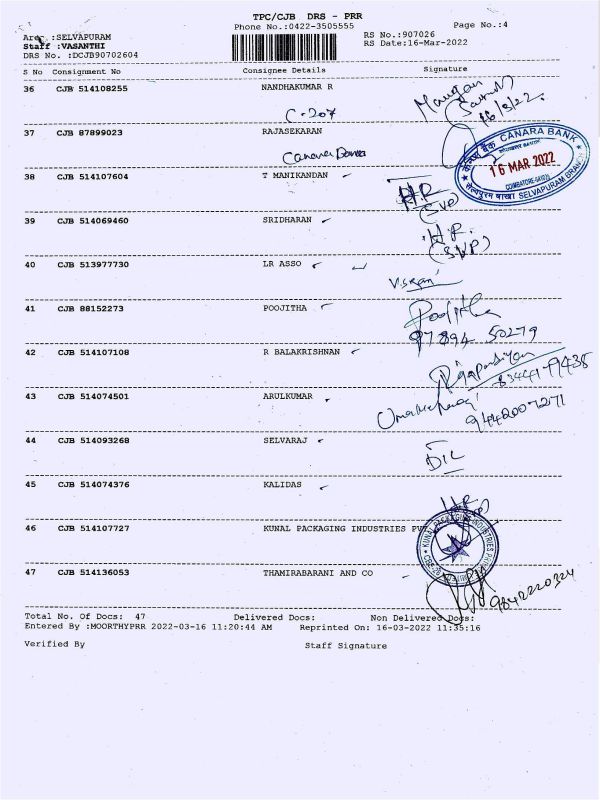 TPC/CJB DRS - PRR
Phone No.:0422-3505555
Page No.:4
Area :SELVAPURAM
Staff :VASANTHI
DRS No. :DCJB90702604
RS No.:907026
RS Date:16-Mar-2022
S No Consignment No Consignee Details Signature
36 CJB 514108255 NANDHAKUMAR R
C-207
16/3/22.
37 CJB 87899023 RAJASEKARAN
Canara Bank
CANARA BANK
16 MAR 2022
SELVAPURAM BRANCH
38 CJB 514107604 T MANIKANDAN
H.R
(SVP)
39 CJB 514069460 SRIDHARAN
H.R.
(SVP)
40 CJB 513977730 LR ASSO
41 CJB 88152273 POOJITHA
Poojitha
97894 50279
42 CJB 514107108 R BALAKRISHNAN
43 CJB 514074501 ARULKUMAR
44 CJB 514093268 SELVARAJ
45 CJB 514074376 KALIDAS
46 CJB 514107727 KUNAL PACKAGING INDUSTRIES PVT
47 CJB 514136053 THAMIRABARANI AND CO
9842220324
Total No. Of Docs: 47 Delivered Docs: Non Delivered Docs:
Entered By :MOORTHYPRR 2022-03-16 11:20:44 AM Reprinted On: 16-03-2022 11:35:16
Verified By Staff Signature